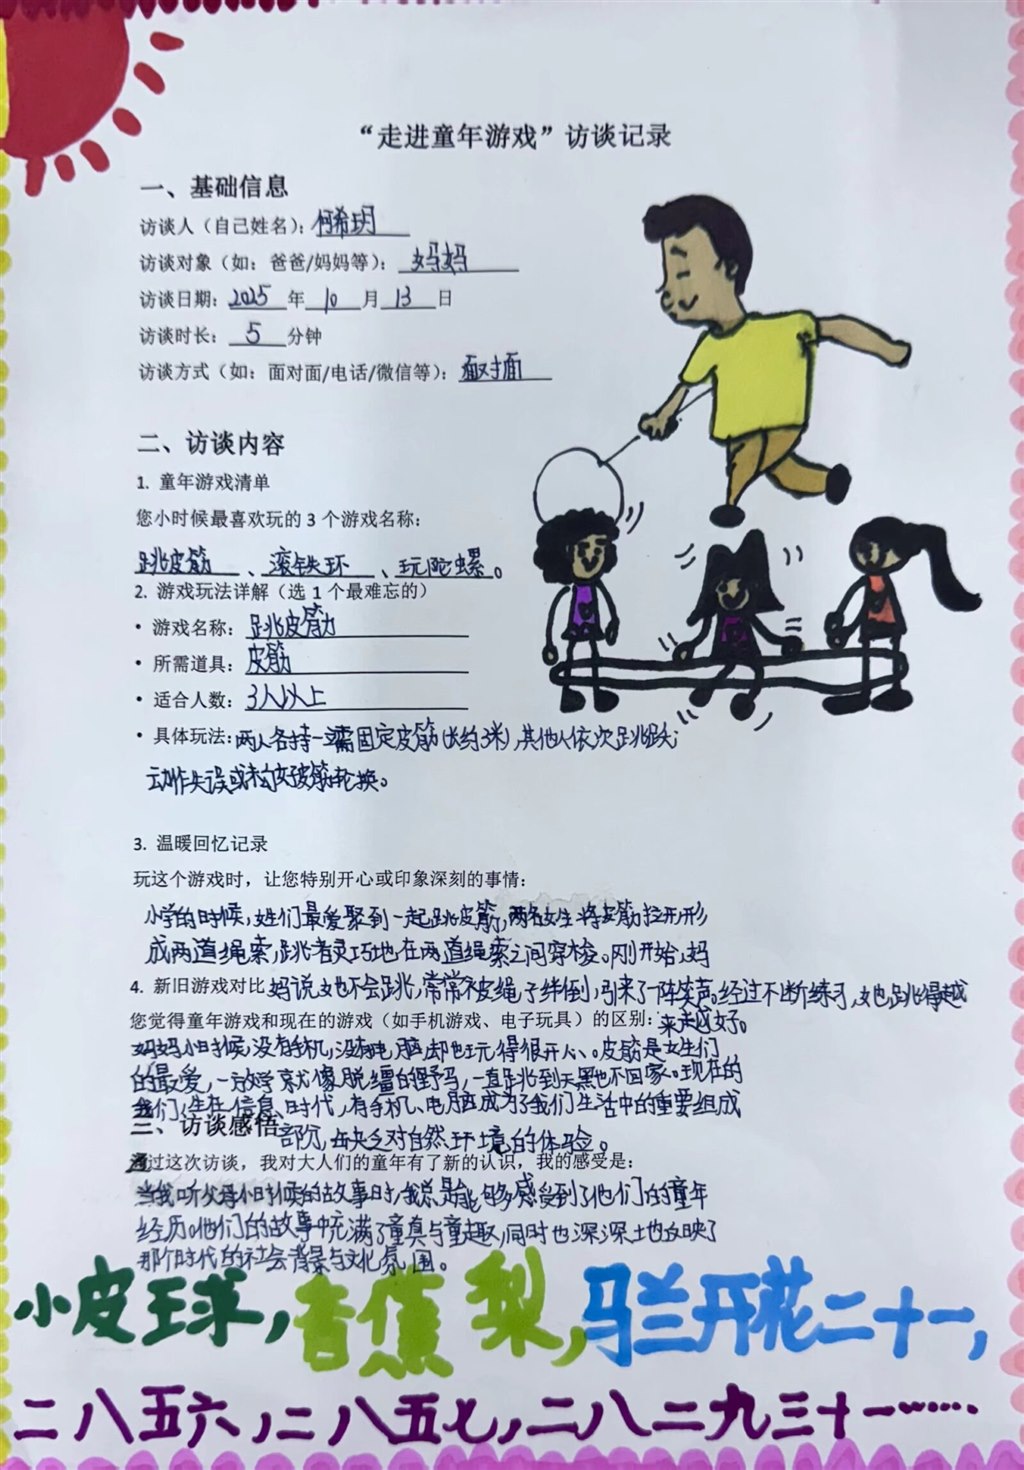 “走进童年游戏”访谈记录
一、基础信息
访谈人（自己姓名）：何希玥
访谈对象（如：爸爸/妈妈等）：妈妈
访谈日期：2025年10月13日
访谈时长：5分钟
访谈方式（如：面对面/电话/微信等）：面对面
二、访谈内容
1. 童年游戏清单
您小时候最喜欢玩的 3 个游戏名称：
跳皮筋、滚铁环、玩陀螺。
2. 游戏玩法详解（选 1 个最难忘的）
• 游戏名称：跳皮筋
• 所需道具：皮筋
• 适合人数：3人以上
• 具体玩法：两人各持一端固定皮筋(长约3米),其他人依次跳跃,
动作失误或松女皮筋轮换。
3. 温暖回忆记录
玩这个游戏时，让您特别开心或印象深刻的事情：
小学的时候,女生们最爱聚到一起跳皮筋,两名女生将皮筋拉开,形
成两道绳索,跳者灵巧地在两道绳索之间穿梭。刚开始,妈
4. 新旧游戏对比 妈说,她不会跳,常常被皮绳子绊倒,引来了一阵笑声。经过不断练习,她跳得越
您觉得童年游戏和现在的游戏（如手机游戏、电子玩具）的区别：来越好。
妈妈小时候,没有手机,没有电脑却也玩得很开心。皮筋是女生们
的最爱,一放学就像脱缰的野马,一直跳到天黑也不回家。现在的
我们,生在信息时代,有手机、电脑成为了我们生活中的重要组成
三、访谈感悟 部分,缺乏对自然环境的体验。
通过这次访谈，我对大人们的童年有了新的认识，我的感受是：
当我听父母小时候的故事时,我总是能够感受到了他们的童年
经历。他们的故事中充满了童真与童趣,同时也深深土地反映了
那个时代的社会背景与文化氛围。
小皮球,香蕉梨,马兰开花二十一,
二八五六,二八五七,二八二九三十一……